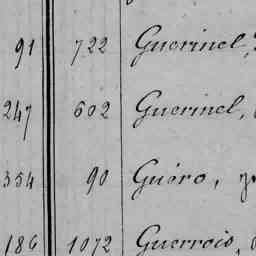 91 722 Guerinel,
247 602 Guerinel,
354 90 Guéro,
186 1072 Guerrois,